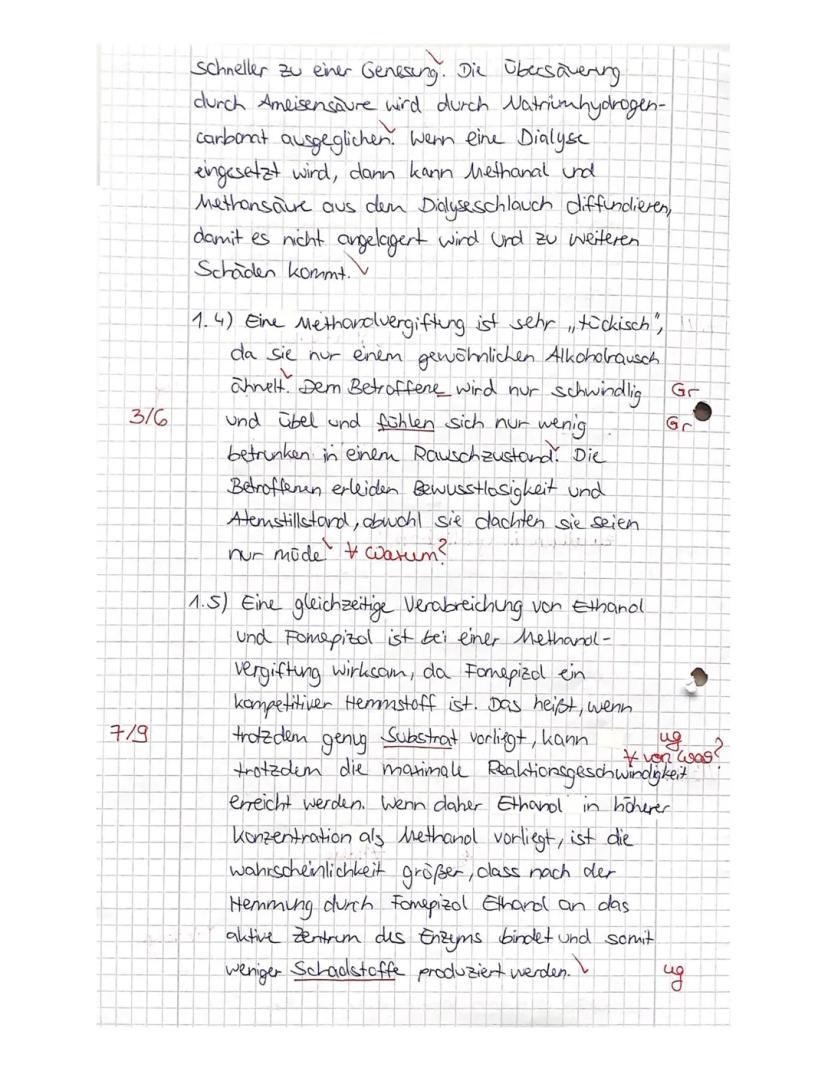 schneller zu einer Genesung. Die Übersäuerung
durch Ameisensäure wird durch Natriumhydrogen-
carbonat ausgeglichen. Wenn eine Dialyse
eingesetzt wird, dann kann Methanal und
Methansäure aus dem Dialyseschlauch diffundieren,
damit es nicht angelagert wird und zu weiteren
Schäden kommt.
1.4) Eine Methanolvergiftung ist sehr „tückisch",
da sie nur einem gewöhnlichen Alkoholrausch
ähnelt. Dem Betroffene wird nur schwindlig Gr
3/6 und übel und fühlen sich nur wenig Gr
betrunken in einem Rauschzustand. Die
Betroffenen erleiden Bewusstlosigkeit und
Atemstillstand, obwohl sie dachten sie seien
nur müde Warum?
1.5) Eine gleichzeitige Verabreichung von Ethanol
und Fomepizol ist bei einer Methanol-
vergiftung wirksam, da Fomepizol ein
kompetitiver Hemmstoff ist. Das heißt, wenn
7/9 trotzdem genug Substrat vorliegt, kann ug
von was?
trotzdem die maximale Reaktionsgeschwindigkeit
erreicht werden. Wenn daher Ethanol in höherer
Konzentration als Methanol vorliegt, ist die
wahrscheinlichkeit größer, dass nach der
Hemmung durch Fomepizol Ethanol an das
aktive Zentrum des Enzyms bindet und somit
weniger Schadstoffe produziert werden. ug